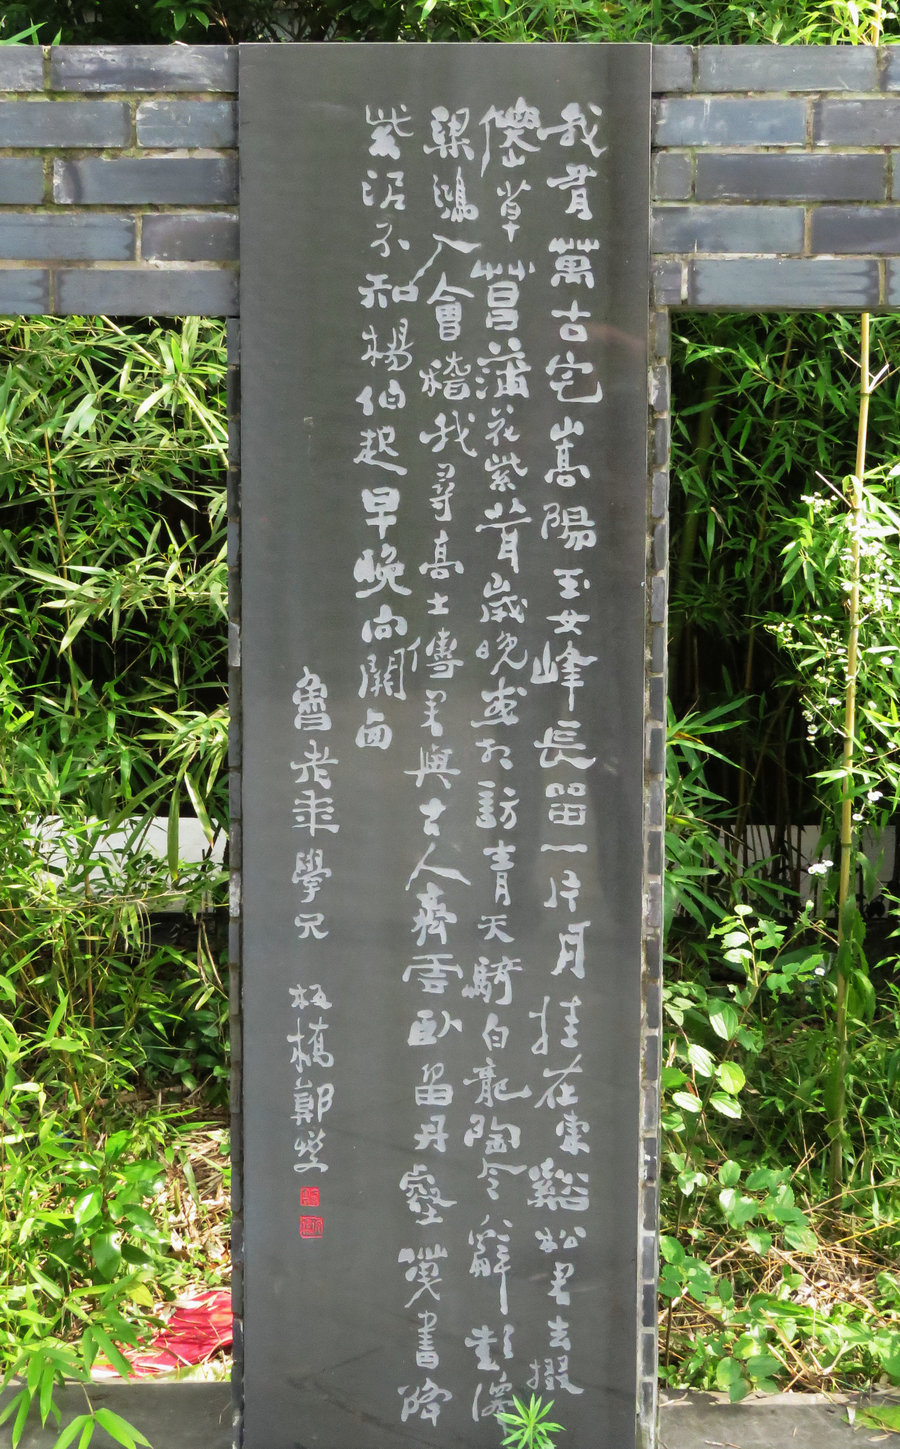 我有萬古宅嵩陽玉女峰長留一片月挂在東谿松君去掇
僊草菖蒲花紫茸歲晚或相訪青天騎白龍陶令辭彭澤
梁鴻入會稽我尋高士傳君與古人齊雲臥留丹壑天書降
紫泥不知楊伯起早晚向關西
魯老年學兄
板橋鄭燮